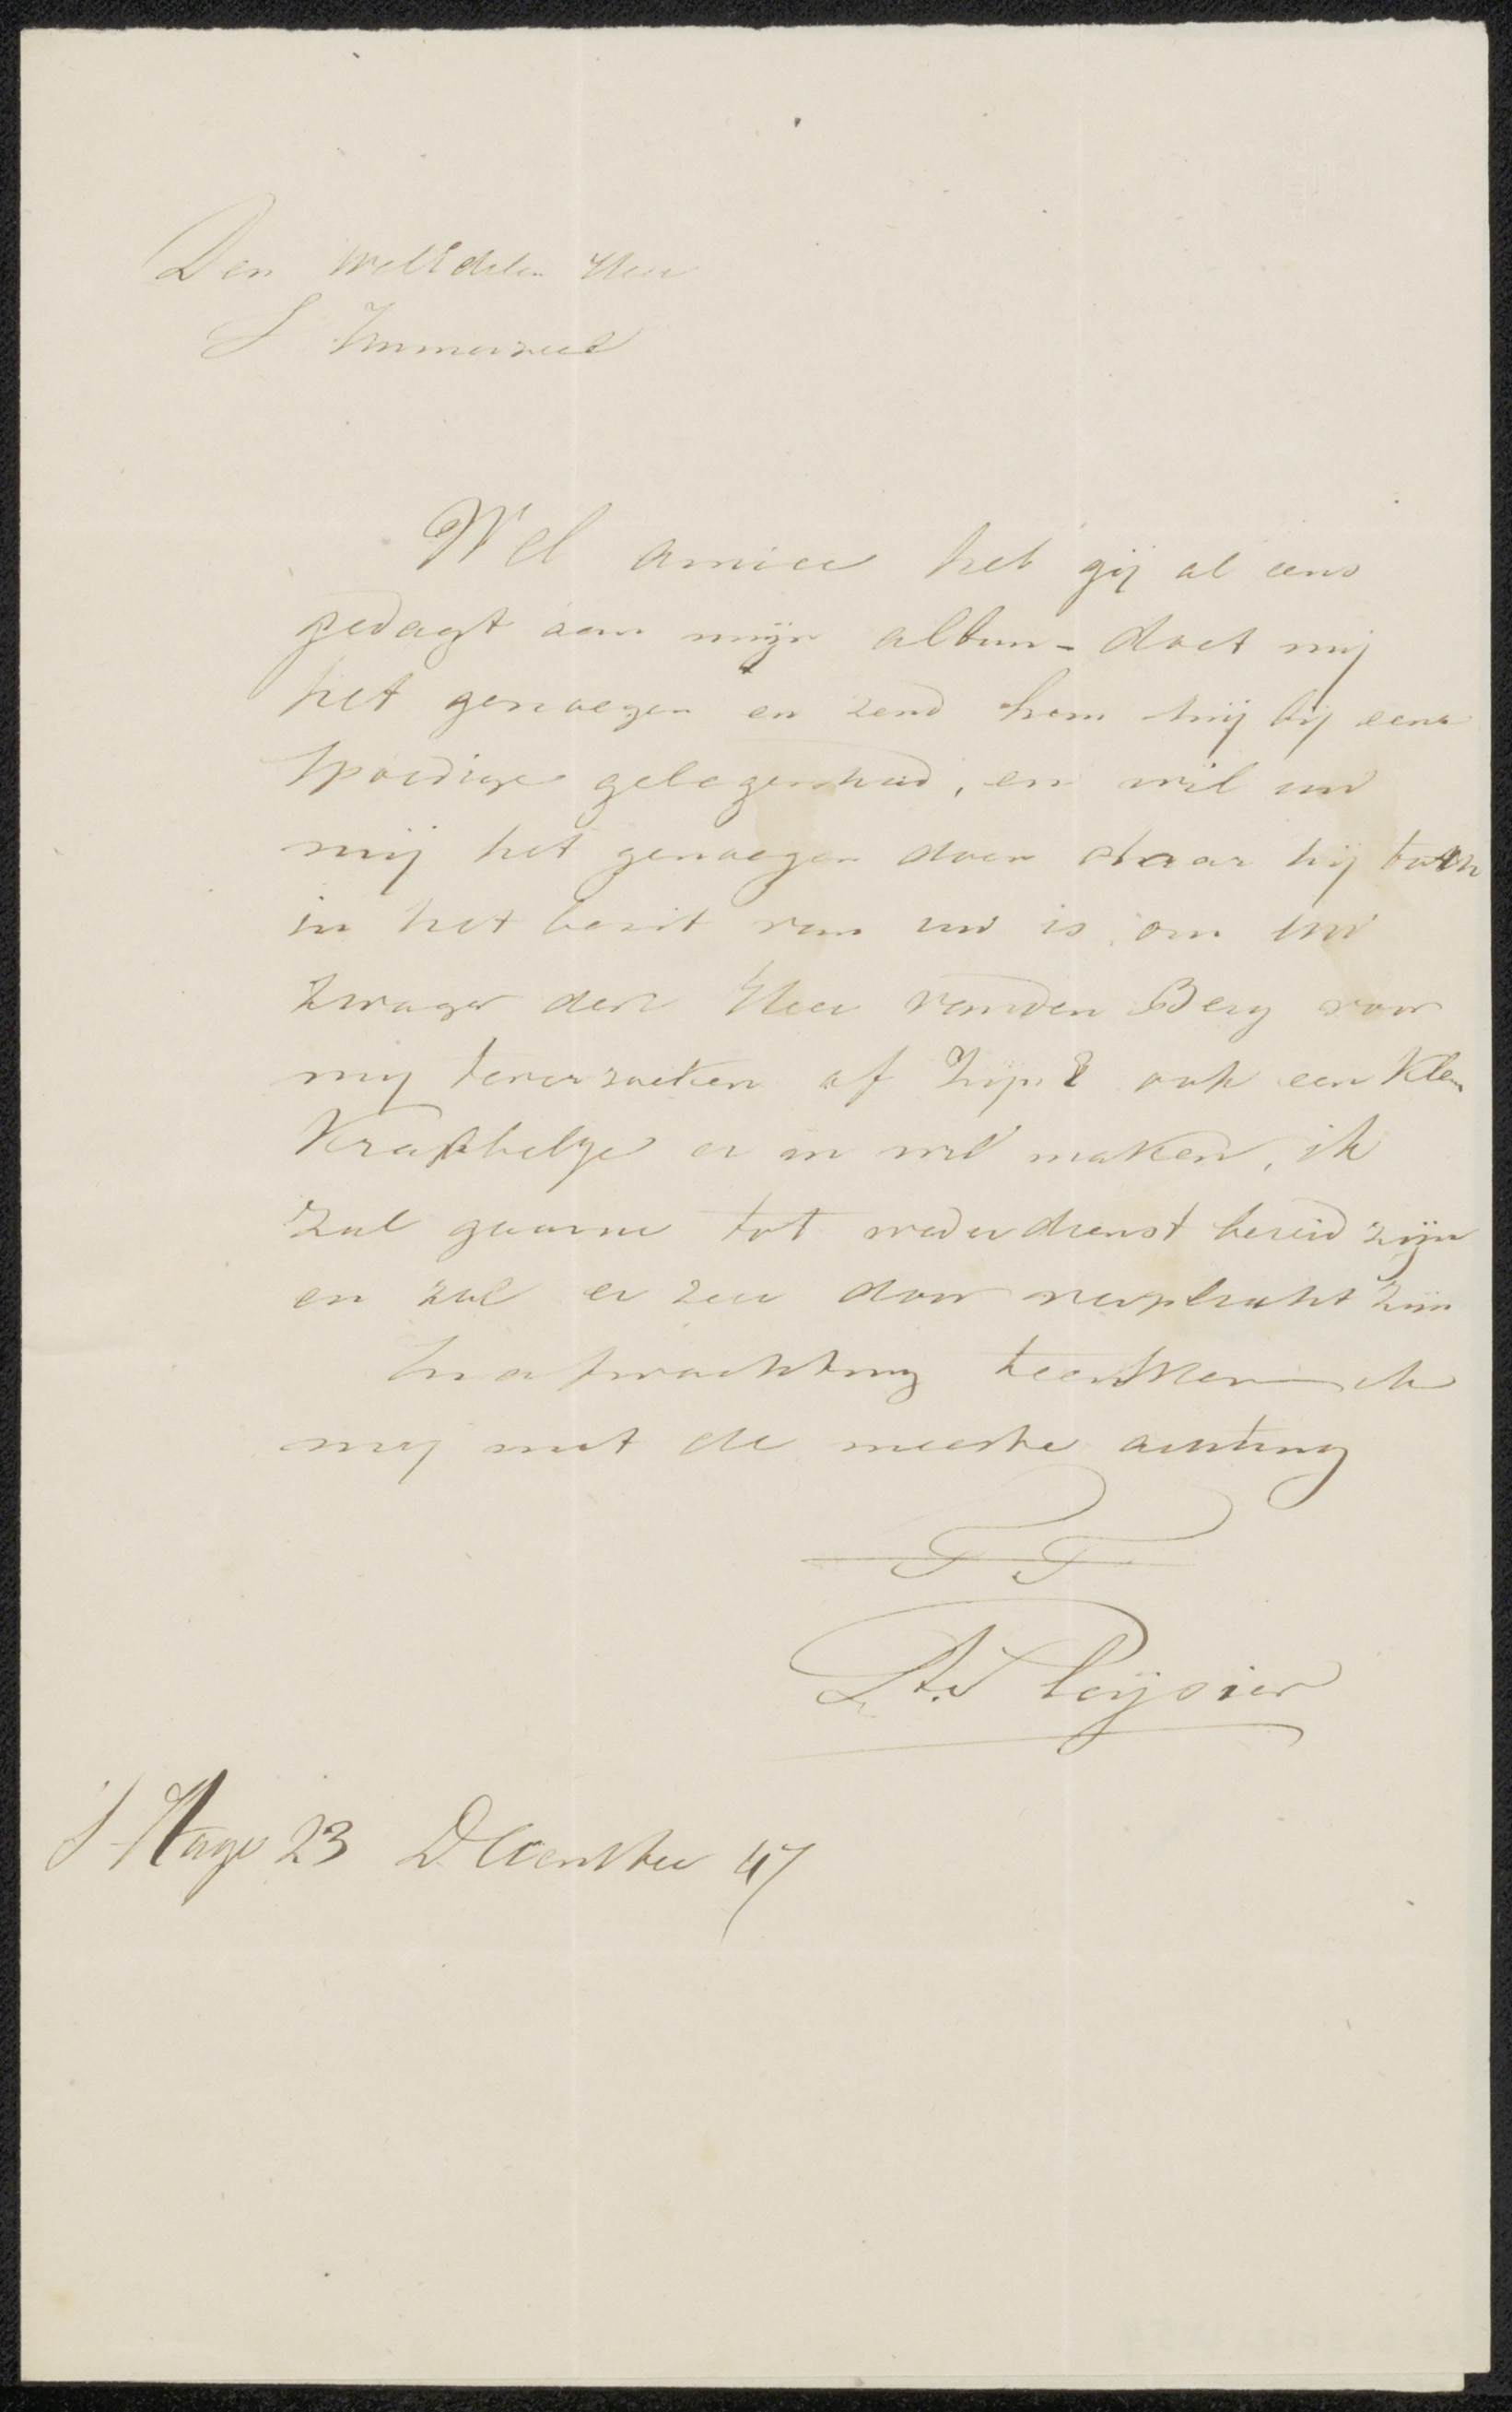 Den WelEdelen Heer
S Immerzeel
Wel amice heb gij al eens
gedagt aan mijn album - doet mij
het genoegen en zend hem mij bij eene
spoedige gelegenheid, en wil uw
mij het genoegen doen daar hij toch
in het bezit van uw is, om uw
zwager den Heer van den Berg voor
mij te verzoeken of ook een klein
Krabbeltje er in wil maken, ik
zal gaarne tot wederdienst bereid zijn
en zal er zeer door verplicht zijn
In afwachting teeken ik
mij met de meeste achting
TT
A. Pleijsier
S Hage 23 December 47